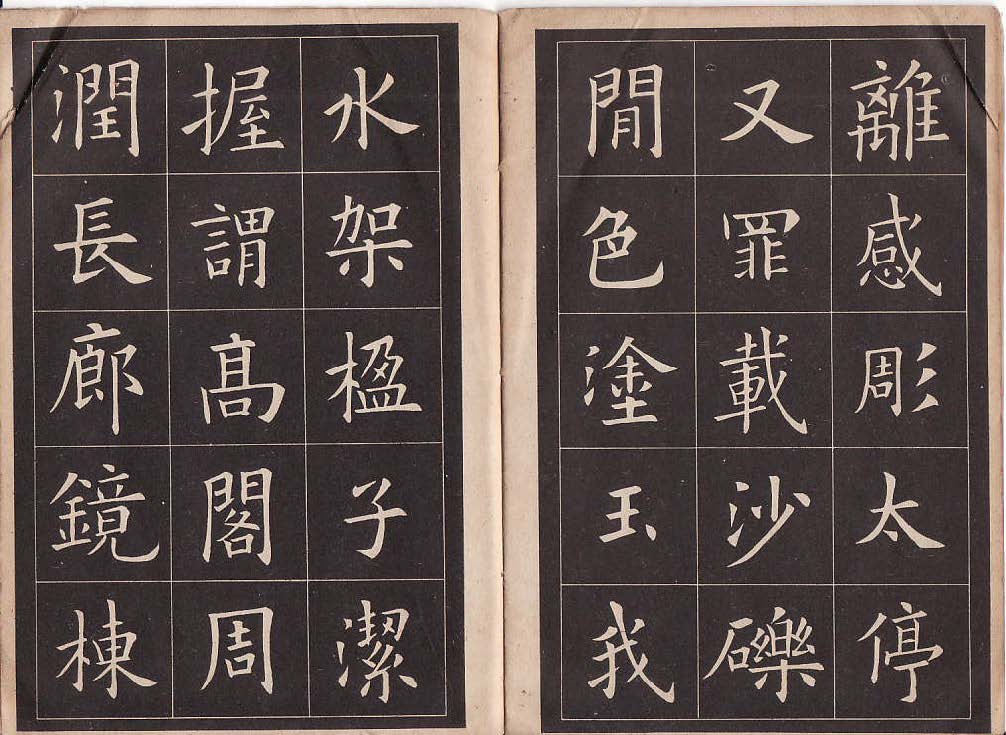 離感彫太停
又罪載沙礫
閒色塗玉我
水架楹子潔
握謂髙閣周
潤長廊鏡棟